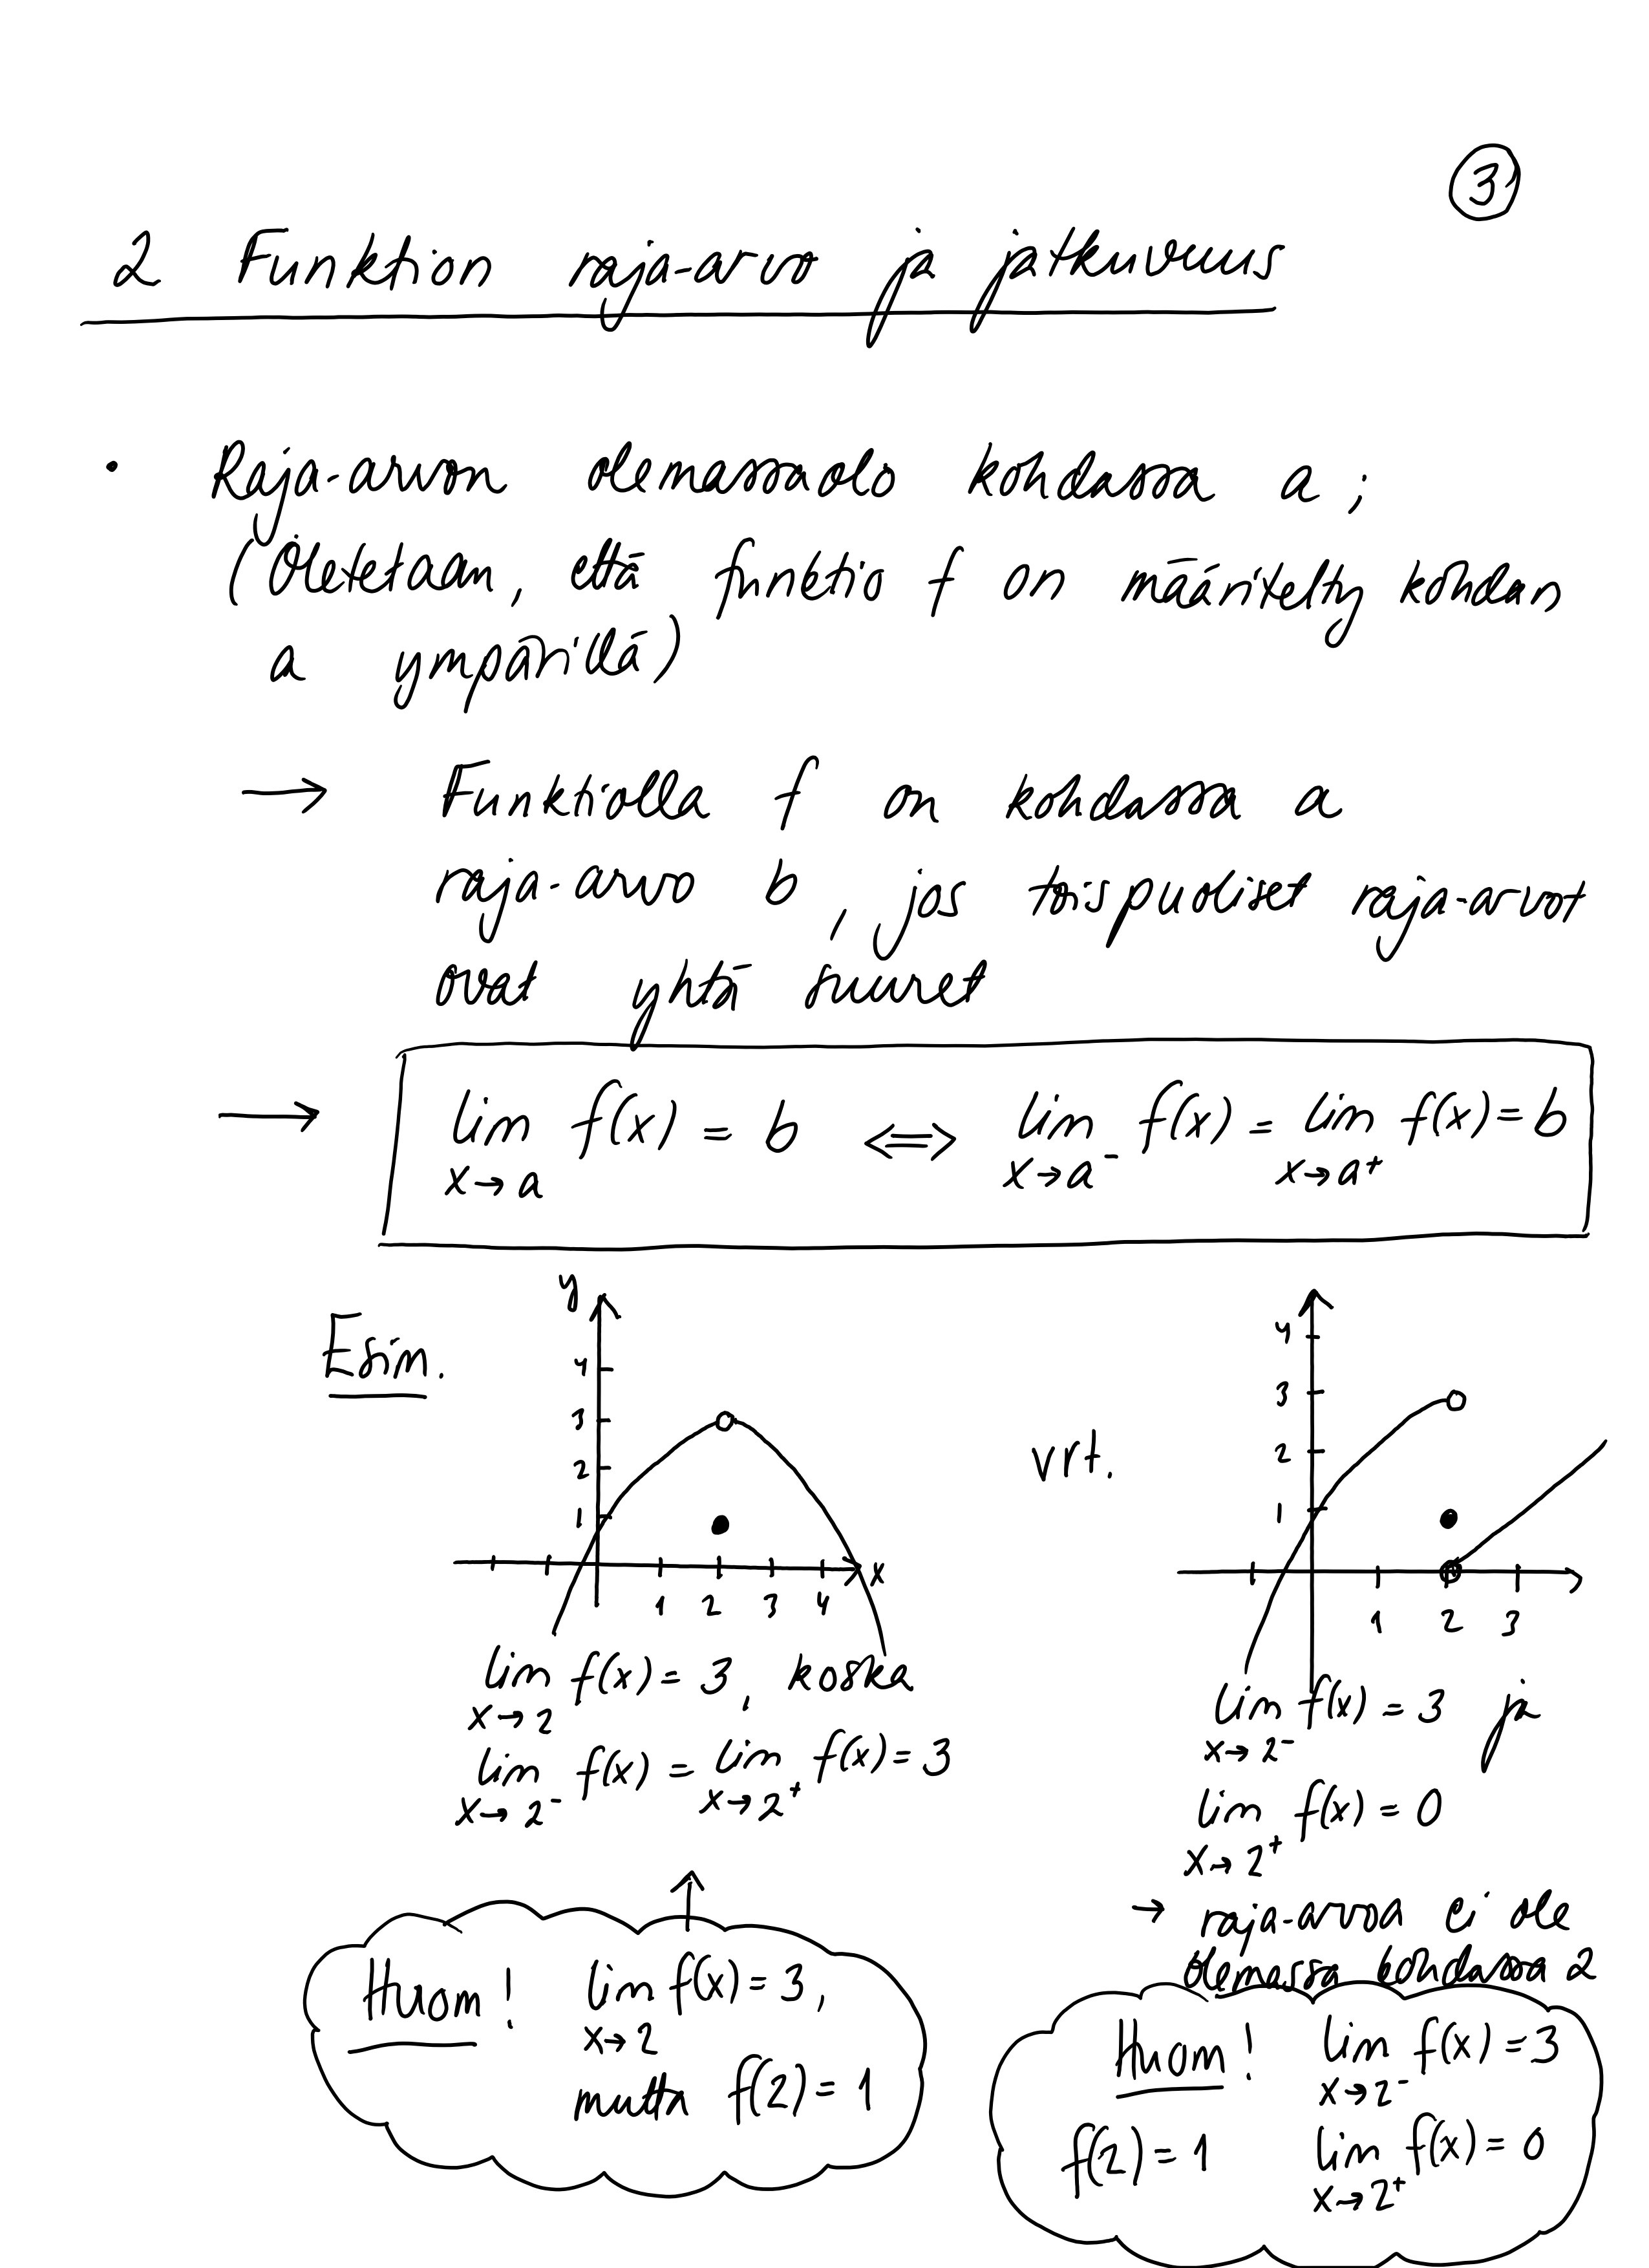 3
2 Funktion raja-arvo ja jatkuvuus
• Raja-arvon olemassaolo kohdassa a;
(Oletetaan, että funktio f on määritelty kohdan
a ympärillä)
→ Funktiolla f on kohdassa a
raja-arvo b, jos toispuoliset raja-arvot
ovat yhtä suuret
→ lim f(x) = b ⟺ lim f(x) = lim f(x) = b
x→a x→a⁻ x→a⁺
Esim.
y
4
3
2
1
x
1 2 3 4
lim f(x) = 3, koska
x→2
lim f(x) = lim f(x) = 3
x→2⁻ x→2⁺
Huom! lim f(x) = 3,
x→2
mutta f(2) = 1
vrt.
4
3
2
1
1 2 3
lim f(x) = 3 ja
x→2⁻
lim f(x) = 0
x→2⁺
→ raja-arvoa ei ole
olemassa kohdassa 2
Huom! lim f(x) = 3
x→2⁻
f(2) = 1 lim f(x) = 0
x→2⁺